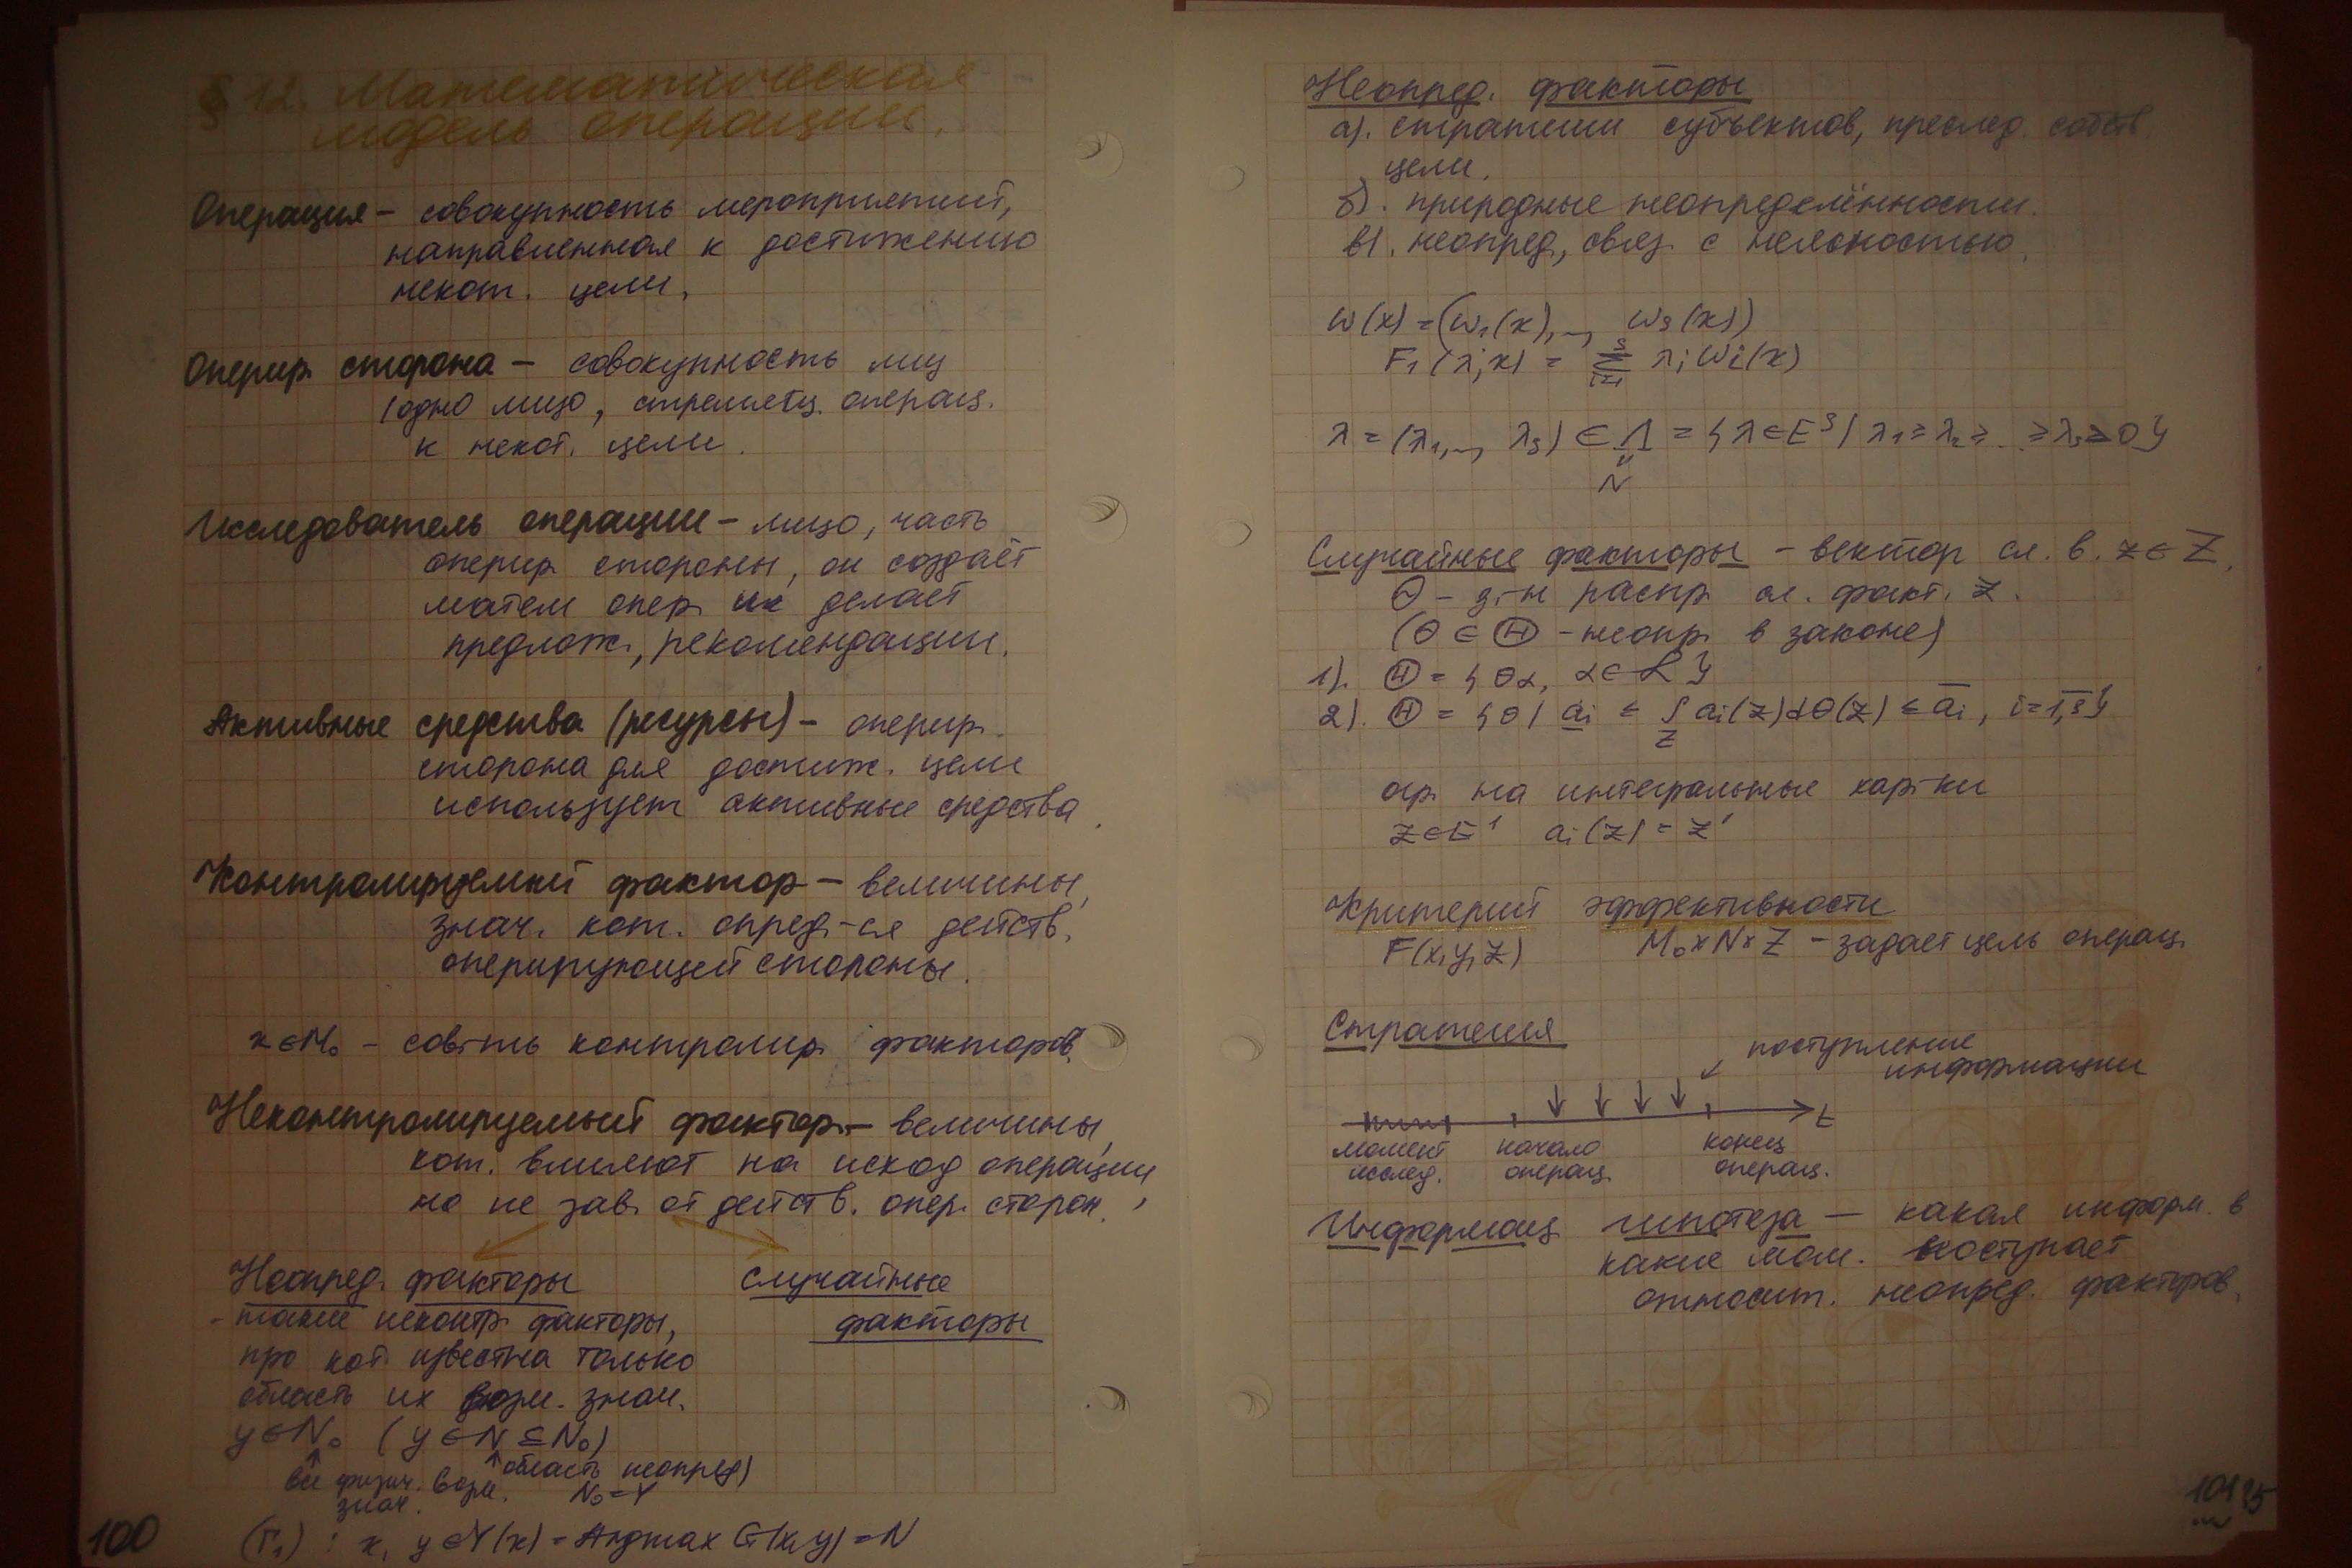 § 12. Математическая
модель операции.
Операция – совокупность мероприятий,
направленная к достижению
некот. цели.
Оперир. сторона – совокупность лиц
(одно лицо, стремящ. операц.
к некот. цели.
Исследователь операции – лицо, часть
оперир. стороны, он создаёт
матем опер. делает
предлож., рекомендации.
Активные средства (ресурсы) – оперир.
сторона для достиж. цели
использует активные средства.
Контролируемый фактор – величины,
знач. кот. опред-ся действ.
оперирующей стороны.
x ∈ M₀ – сов-ть контролир. факторов.
Неконтролируемый фактор – величины,
кот. влияют на исход операции,
но не зав. от действ. опер. сторон.
Неопред. факторы
- такие неконтр. факторы,
про кот. известна только
область их возм. знач.
y ∈ N₀ (y ∈ N ⊆ N₀)
все физич. возм. знач.
область неопред)
N₀ = Y
Случайные
факторы
(Г₁) : x, y ∈ Y(x) = Argmax G(x,y) = N
100
Неопред. факторы
а). стратегии субъектов, преслед. собств
цели.
б). природные неопределённости.
в). неопред., связ. с неясностью.
w(x) = (w₁(x),.., wₛ(x))
F₁(λ,x) = Σᵢ₌₁ˢ λᵢwᵢ(x)
λ = (λ₁,.., λₛ) ∈ Λ = {λ ∈ Eˢ | λ₁ ≥ λ₂ ≥ .. ≥ λₛ ≥ 0}
"
N
Случайные факторы – вектор сл. в. z ∈ Z.
Θ – з-н распр. сл. факт. z.
(θ ∈ Ⓗ – неопр. в законе)
1). Ⓗ = {θα, α ∈ ℒ}
2). Ⓗ = {θ | a̲ᵢ ≤ ∫_Z aᵢ(z)dθ(z) ≤ āᵢ, i=1,s}
огр. на интегральные хар-ки
z ∈ E¹ aᵢ(z) = zⁱ
Критерий эффективности
F(x,y,z) M₀×N×Z – задает цель операц.
Стратегия
поступление
информации
t
момент
исслед.
начало
операц.
конец
операц.
Информац. гипотеза – какая информ. в
какие мом. поступает
относит. неопред. факторов.
101